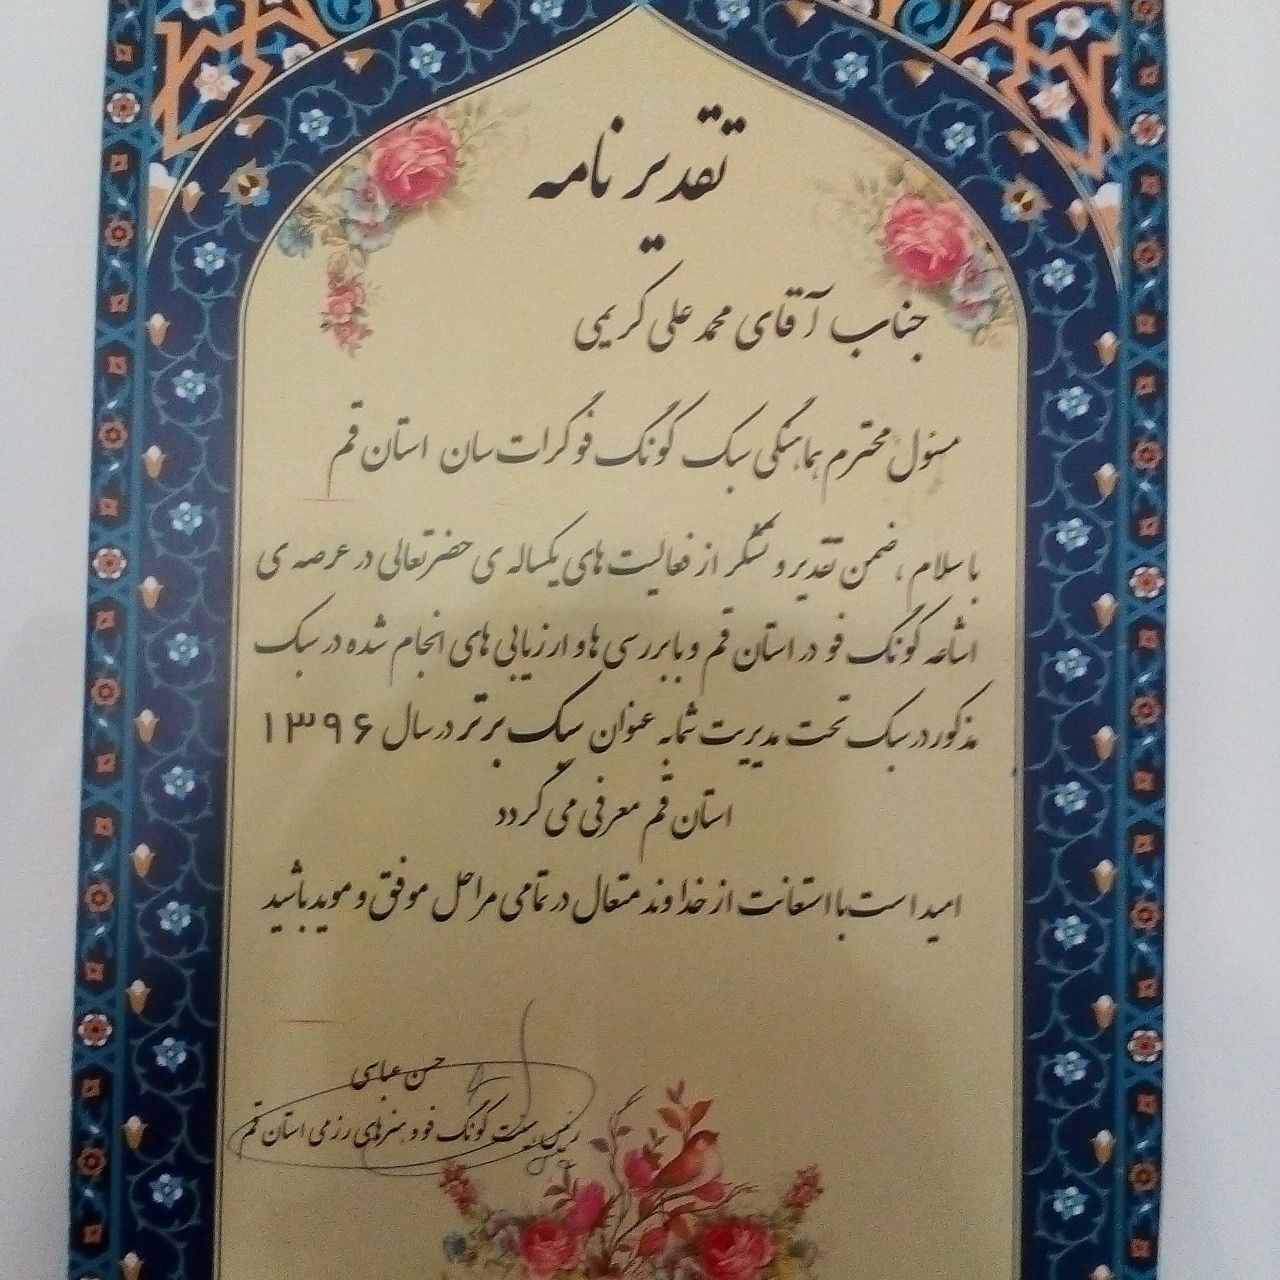 تقدیر نامه
جناب آقای محمد علی کریمی
مسئول محترم هماهنگی سبک کونگ فو کرات سان استان قم
با سلام ، ضمن تقدیر و تشکر از فعالیت های یکساله ی حضرتعالی در عرصه ی
اشاعه کونگ فو در استان قم و با بررسی ها و ارزیابی های انجام شده در سبک
مذکور در سبک تحت مدیریت شما به عنوان سبک برتر در سال ۱۳۹۶
استان قم معرفی می گردد
امید است با استعانت از خداوند متعال در تمامی مراحل موفق و موید باشید
حسن عباسی
رئیس کونگ فو و هنرهای رزمی استان قم